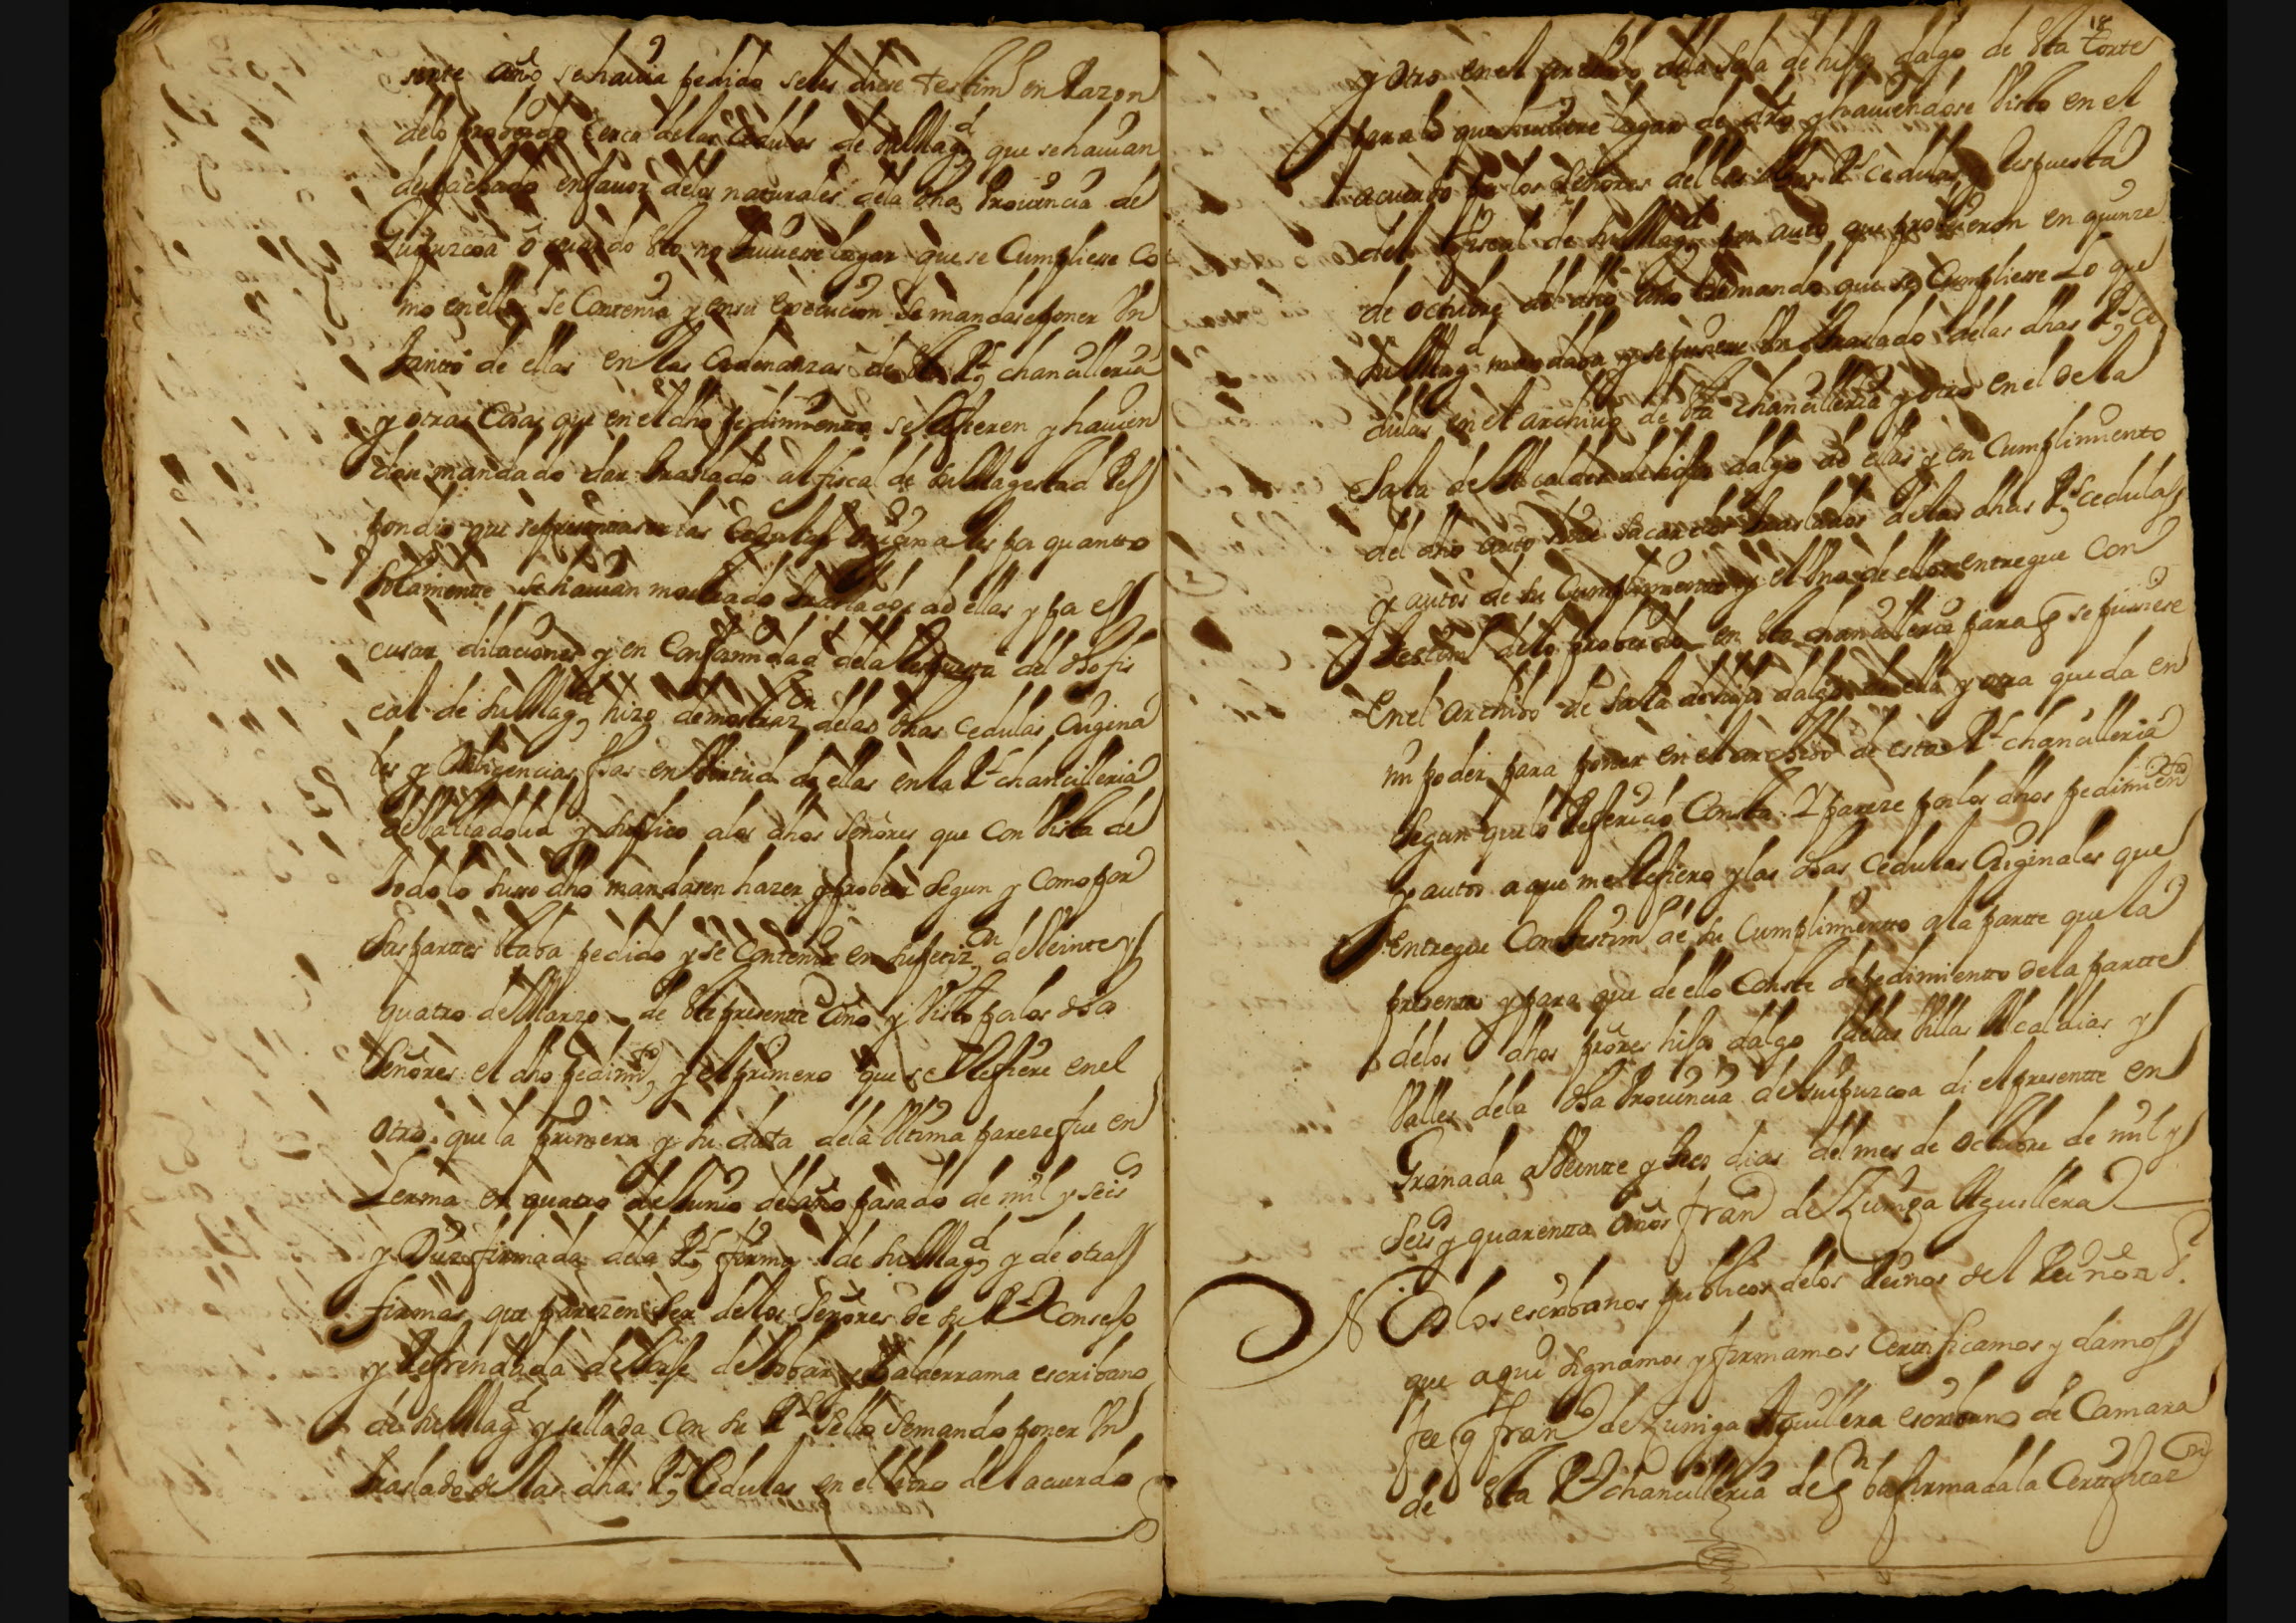 sente año se hauia pedido se les diese testimº en Razon
delo probeydo cerca de las Cedulas de su Magd que se hauian
despachado en fauor delos naturales dela dha Prouincia de
Guipuzcoa o quando esto no huuiere lugar que se Cumpliese co
mo en ellas se Contenia y en su execucion se mandase poner Un
tanto de ellas en las ordenanzas de esta Rl chancilleria
y otras Cosas que en el dho pedimiento se Refieren y hauien
dose mandado dar traslado al fiscal de su Magestad Res
pondio que se presentasen las Cedulas originales por quanto
Solamente se hauian mostrado traslados de ellas y por es
cusar dilaciones y en Conformidad dela Respuesta del dho fis
cal de su Magd hizo demostrazon delas dhas Cedulas Origina
les y diligencias fhas en Virtud de ellas en la Rl chancilleria
de Valladolid y suplico alos dhos Señores que con Vista de
todo lo suso dho mandasen hazer y probeer Segun y Como por
sus partes estaba pedido y se Contenia en su petizon de Veinte y
quatro de Marzo de este presente año y Visto por los dhos
Señores el dho pedimto y el primero que se Refiere en el
otro que la primera y su data dela Ultima pareze fue en
Lerma en quatro de Junio del año pasado de mil y seisº
y Diez firmada dela Rl firma de su Magd y de otras
firmas que parezen Ser delos Señores de su Rl Consejo
y Refrendada de Jorje de Tobar y Balderrama escribano
de su Magd y sellada con su Rl Sello Se mando poner Un
traslado de las dhas Rs Cedulas en el libro del acuerdo
18
y otro en el archibo dela Sala de hijos dalgo de esta Corte
para lo que huuiere lugar de dro y hauiendose Visto en el
acuerdo por los Señores del las dhas Rs cedulas y Respuesta
del fiscal de su Magd por auto que probeyeron en quinze
de octubre del dho año Se mando que se Cumpliese Lo que
su Magd mandaba y se pusiese Un traslado delas dhas Rs ce
dulas en el archivo de esta chancilleria y otro en el de la
Sala de Alcaldes de hijos dalgo de ellas y en Cumplimiento
del dho auto hize sacar dos traslados delas dhas Rs cedulas
y autos de su Cumplimiento y el Uno de ellos entregue Con
testimº delo probeido en esta chancilleria para q se pusiese
en el archibo de Sala de hijos dalgo de ella y otra queda en
mi poder para poner en el archibo de esta Rl chancilleria
Segun que lo Referido Consta Y pareze por los dhos pedimientos
y autos a que me Refiero y las dhas Cedulas Originales que
entregue Con testimº de su Cumplimiento a la parte que la
presento y para que de ello Conste de pedimiento dela parte
delos dhos prores hijos dalgo delas Villas Alcaldias y
Valles dela dha Prouincia de Guipuzcoa di el presente en
Granada a Veinte y tres dias del mes de octubre de mil y
Seisº y quarenta años franº de Zuniga Aguillera
Nos los escribanos publicos delos Reinos del Rei nro sr
que aqui Signamos y firmamos Certificamos y damos
fee q franco de Zuniga Aguillera escribano de Camara
de esta Rl chancilleria de qn ba firmada la Certificaon